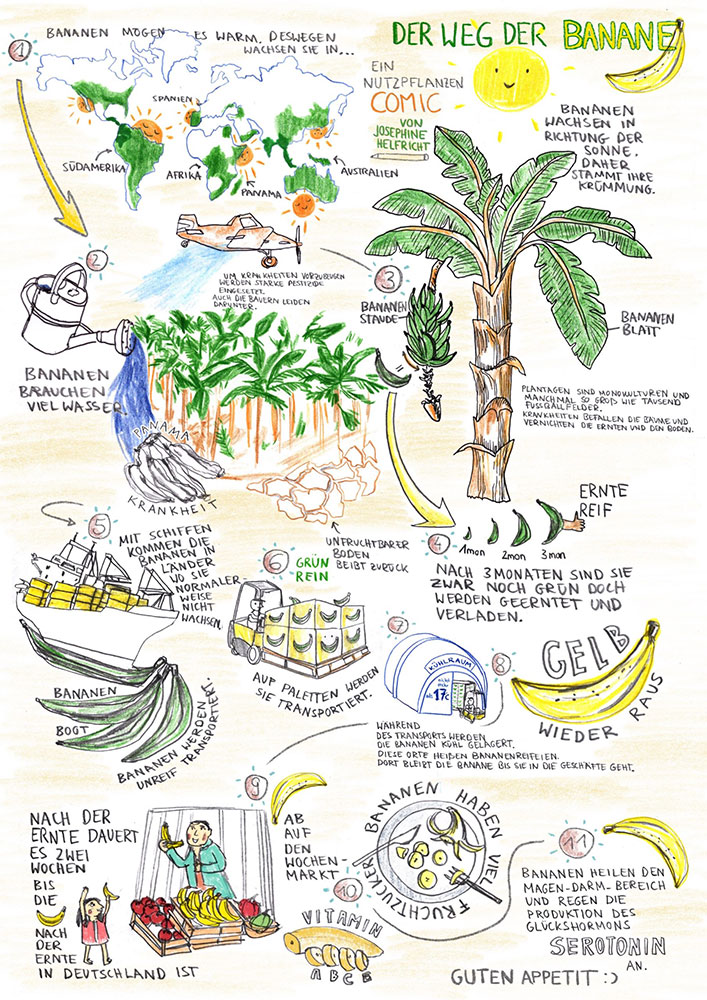 DER WEG DER BANANE
EIN
NUTZPFLANZEN
COMIC
VON
JOSEPHINE
HELFRICHT
1
BANANEN MÖGEN ES WARM, DESWEGEN
WACHSEN SIE IN...
SPANIEN
SÜDAMERIKA
AFRIKA
PANAMA
AUSTRALIEN
BANANEN
WACHSEN IN
RICHTUNG DER
SONNE.
DAHER
STAMMT IHRE
KRÜMMUNG.
2
BANANEN
BRAUCHEN
VIEL WASSER
UM KRANKHEITEN VORZUBEUGEN
WERDEN STARKE PESTIZIDE
EINGESETZT.
AUCH DIE BAUERN LEIDEN
DARUNTER.
PANAMA
KRANKHEIT
UNFRUCHTBARER
BODEN
BEIBT ZURÜCK
3
BANANEN
STAUDE
BANANEN
BLATT
PLANTAGEN SIND MONOKULTUREN UND
MANCHMAL SO GROß WIE TAUSEND
FUSSBALLFELDER.
KRANKHEITEN BEFALLEN DIE BÄUME UND
VERNICHTEN DIE ERNTEN UND DEN BODEN.
4
1mon 2mon 3mon
ERNTE
REIF
NACH 3 MONATEN SIND SIE
ZWAR NOCH GRÜN DOCH
WERDEN GEERNTET UND
VERLADEN.
5
MIT SCHIFFEN
KOMMEN DIE
BANANEN IN
LÄNDER
WO SIE
NORMALER-
WEISE
NICHT
WACHSEN.
BANANEN
BOOT
BANANEN WERDEN
UNREIF TRANSPORTIERT.
6
GRÜN
REIN
AUF PALETTEN WERDEN
SIE TRANSPORTIERT.
7
KÜHLRAUM
17°C
WÄHREND
DES TRANSPORTS WERDEN
DIE BANANEN KÜHL GELAGERT.
DIESE ORTE HEIßEN BANANENREIFEIEN.
DORT BLEIBT DIE BANANE BIS SIE IN DIE GESCHÄFTE GEHT.
8
GELB
WIEDER RAUS
9
AB
AUF
DEN
WOCHEN-
MARKT
NACH DER
ERNTE DAUERT
ES ZWEI
WOCHEN
BIS
DIE
NACH
DER
ERNTE
IN DEUTSCHLAND IST
10
VITAMIN
A B C E
BANANEN HABEN VIEL
FRUCHTZUCKER
11
BANANEN HEILEN DEN
MAGEN-DARM-BEREICH
UND REGEN DIE
PRODUKTION DES
GLÜCKSHORMONS
SEROTONIN
AN.
GUTEN APPETIT :)